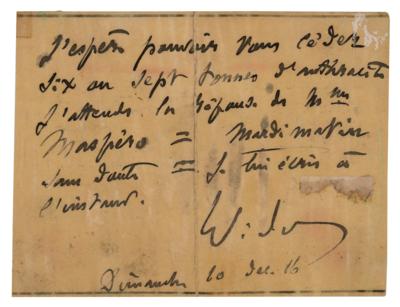 J'espère pouvoir vous céder
six ou sept tonnes d'anthracite
J'attends la réponse de Mme
Maspéro = Mardi matin
sans doute = Je lui écris à
l'instant.
Dimanche 10 Dec. 16